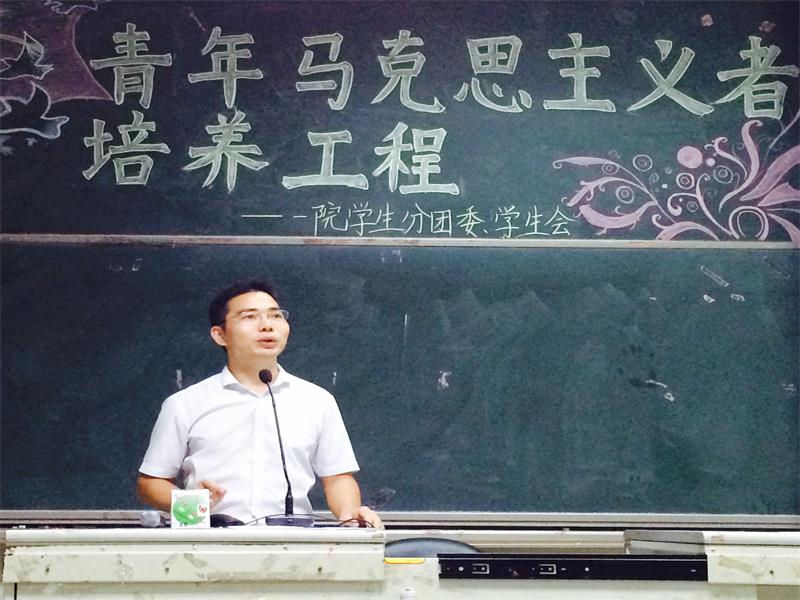 青年马克思主义者
培养工程
——一院学生分团委、学生会